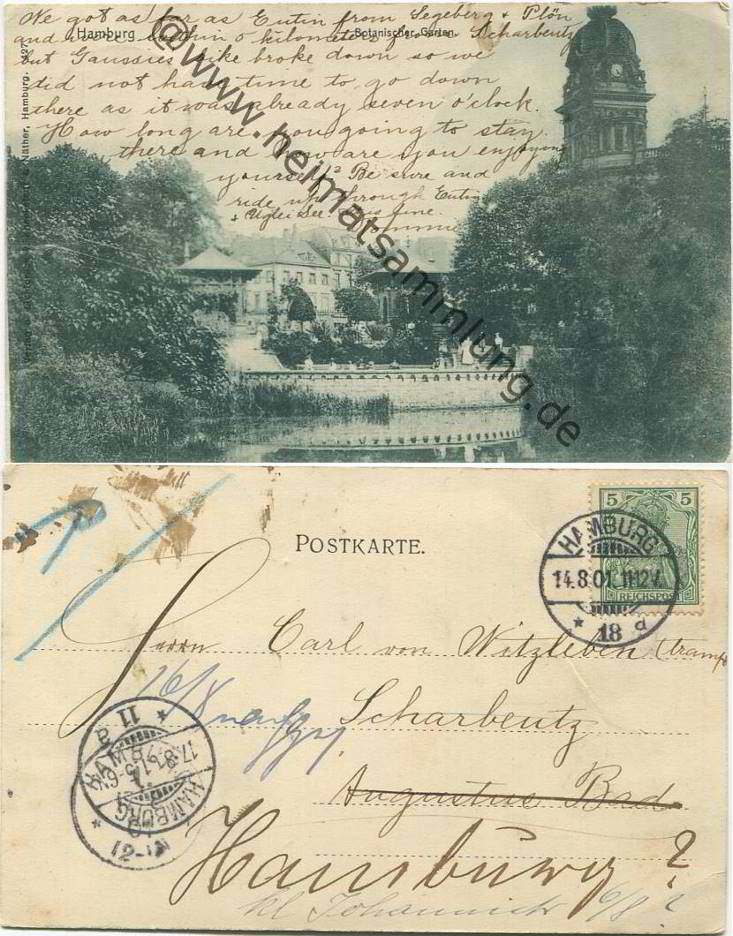 We got as far as Eutin from Segeberg + Plön
Hamburg
Botanischer Garten.
and were within 0 kilometers from Scharbeutz
but Gaussies bike broke down so we
did not have time to go down
there as it was already seven o'clock.
How long are you going to stay
there and how are you enjoying
yourself? Be sure and
ride up through Eutin
+ Uglei See
fine.
Näther, Hamburg. 327
@www.heimatsammlung.de
POSTKARTE.
5 5
REICHSPOST
HAMBURG
14.8.01. 11-12V.
* 18 d
Herrn Carl von Witzleben (tramp
16/8
Scharbeutz
Augustus Bad
HAMBURG
17.8.
* 11
12-1N
Hamburg ?
kl Johannisstr 6/8